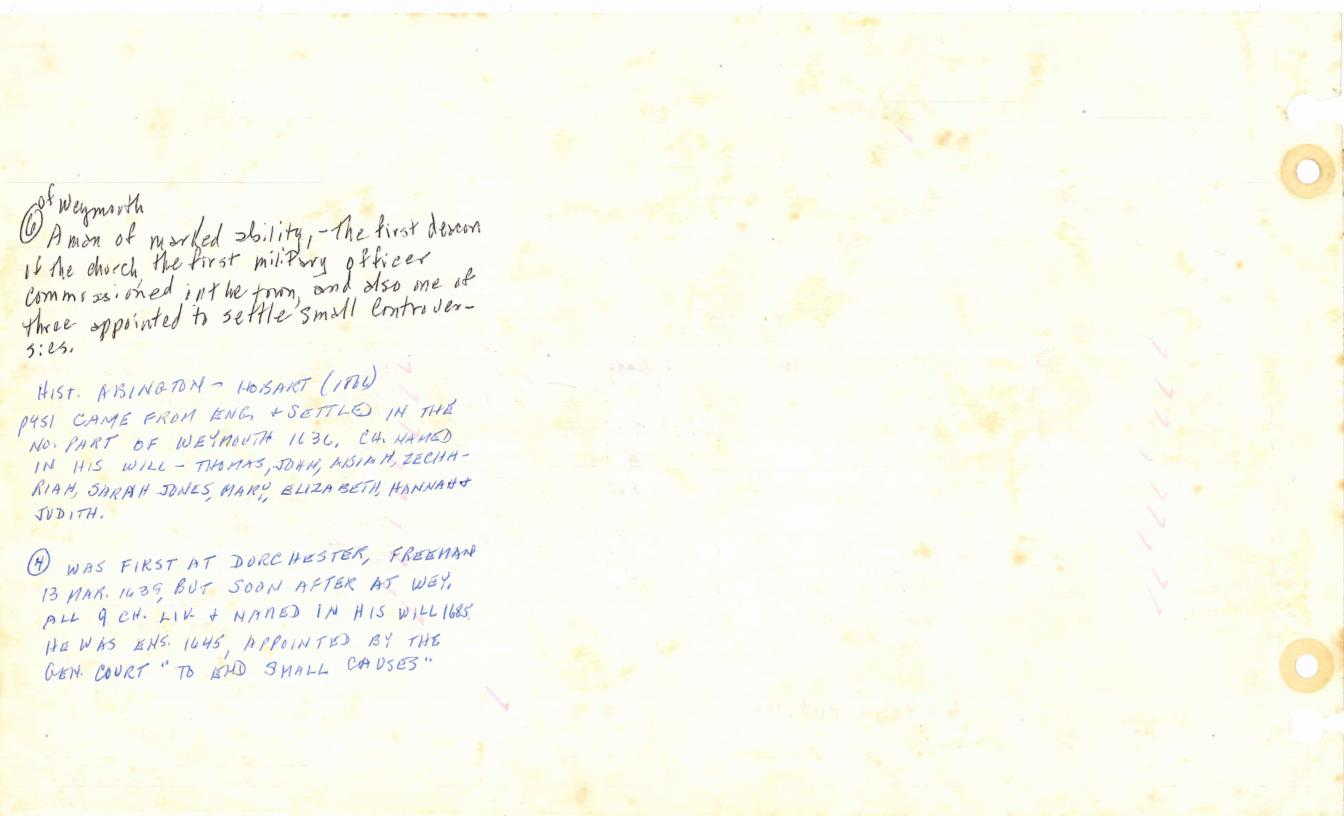 of Weymouth
⑥ A man of marked ability, - The first deacon
of the church, the first military officer
commissioned in the town, and also one of
three appointed to settle small controver-
sies.
HIST. ABINGTON - HOBART (1866)
P451 CAME FROM ENG. + SETTLED IN THE
NO. PART OF WEYMOUTH 1636. CH. NAMED
IN HIS WILL - THOMAS, JOHN, ABIAH, ZECHA-
RIAH, SARAH JONES, MARY, ELIZABETH, HANNAH +
JUDITH.
④ WAS FIRST AT DORCHESTER, FREEMAN
13 MAR. 1639, BUT SOON AFTER AT WEY.
ALL 9 CH. LIV. + NAMED IN HIS WILL 1685.
HE WAS ENS. 1645, APPOINTED BY THE
GEN. COURT "TO END SMALL CAUSES"